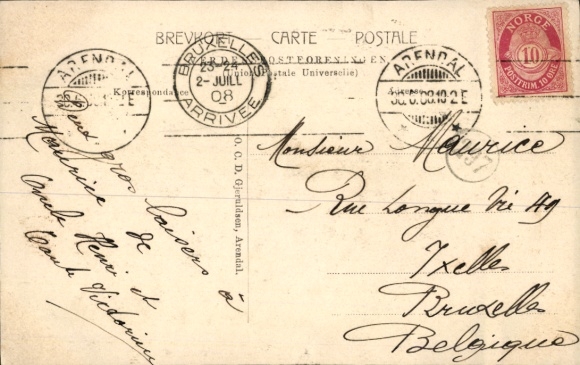 BREVKORT — CARTE POSTALE
VERDENSPOSTFORENINGEN
(Union Postale Universelle)
Korrespondance
Adresse
ARENDAL
BRUXELLES
23-24
2-JUILL
08
ARRIVÉE
ARENDAL
30.6.08.10-2 E
NORGE
10
POSTFRIM. 10 ØRE
O. C. D. Gjeruldsen, Arendal.
gros baisers à
Maurice de
Oncle Henri et
Tante Victorine
Monsieur Maurice
Rue Longue Vie 49
Ixelles
Bruxelles
Belgique